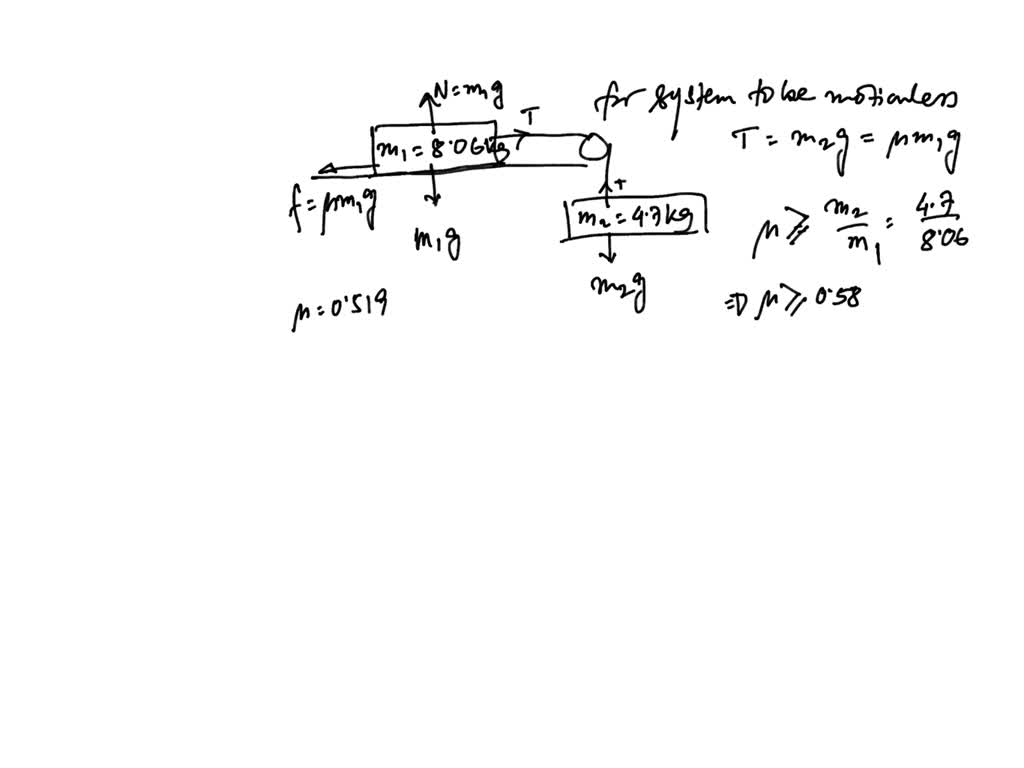 N=m₁g
T
m₁ = 8.06kg
f=μm₁g
m₁g
T
m₂ = 4.7kg
m₂g
μ=0.519
for system to be motionless
T = m₂g = μm₁g
μ ⩾ m₂/m₁ = 4.7/8.06
⇒ μ ⩾ 0.58